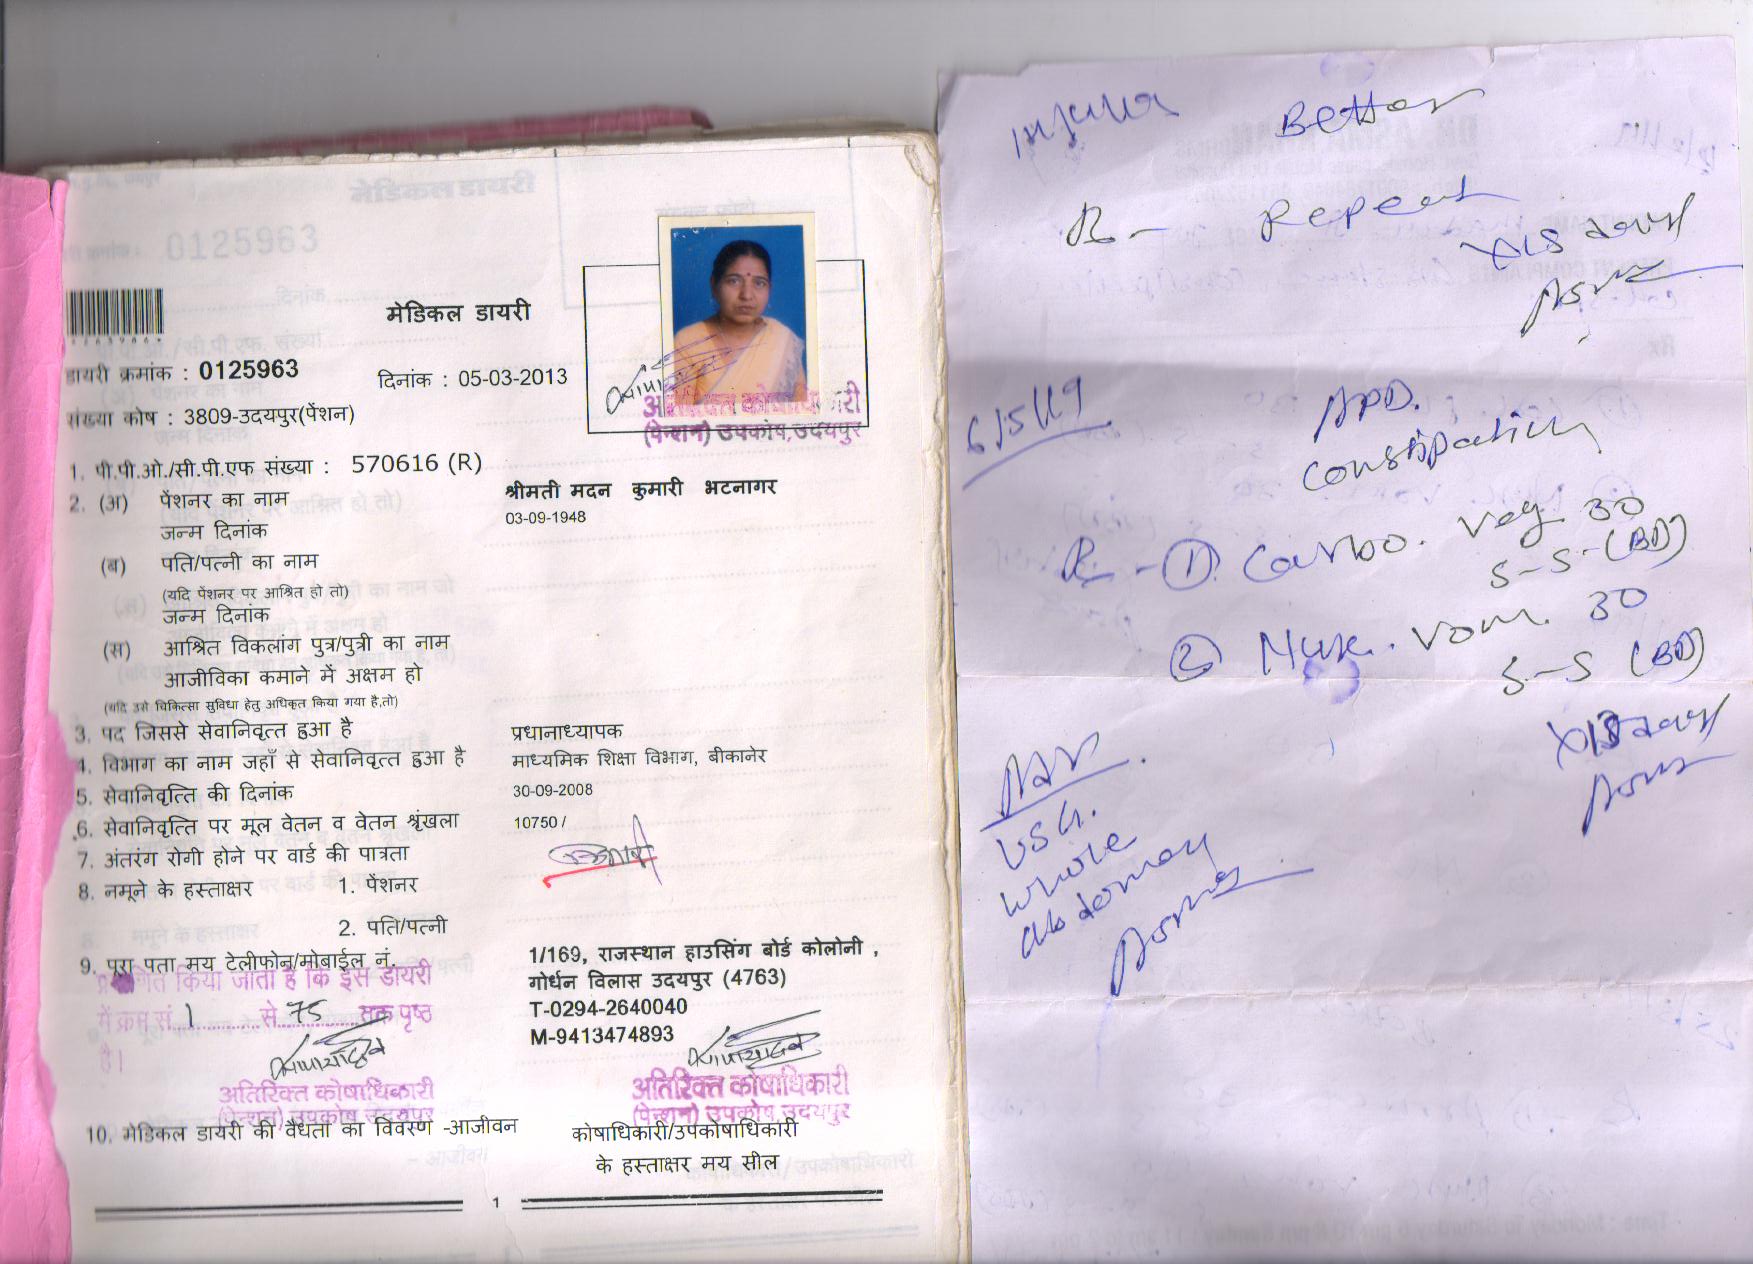 मेडिकल डायरी
डायरी क्रमांक : 0125963
दिनांक : 05-03-2013
संख्या कोष : 3809-उदयपुर(पेंशन)
अतिरिक्त कोषाधिकारी
(पेन्शन) उपकोष,उदयपुर
1. पी.पी.ओ./सी.पी.एफ संख्या : 570616 (R)
2. (अ) पेंशनर का नाम श्रीमती मदन कुमारी भटनागर
जन्म दिनांक 03-09-1948
(ब) पति/पत्नी का नाम
(यदि पेंशनर पर आश्रित हो तो)
जन्म दिनांक
(स) आश्रित विकलांग पुत्र/पुत्री का नाम
आजीविका कमाने में अक्षम हो
(यदि उसे चिकित्सा सुविधा हेतु अधिकृत किया गया है,तो)
3. पद जिससे सेवानिवृत्त हुआ है प्रधानाध्यापक
4. विभाग का नाम जहाँ से सेवानिवृत्त हुआ है माध्यमिक शिक्षा विभाग, बीकानेर
5. सेवानिवृत्ति की दिनांक 30-09-2008
6. सेवानिवृत्ति पर मूल वेतन व वेतन श्रृंखला 10750 /
7. अंतरंग रोगी होने पर वार्ड की पात्रता
8. नमूने के हस्ताक्षर 1. पेंशनर
2. पति/पत्नी
9. पूरा पता मय टेलीफोन/मोबाईल नं. 1/169, राजस्थान हाउसिंग बोर्ड कोलोनी ,
गोर्धन विलास उदयपुर (4763)
T-0294-2640040
M-9413474893
प्रमाणित किया जाता है कि इस डायरी
में क्रम सं. 1 से 75 तक पृष्ठ
है।
अतिरिक्त कोषाधिकारी
(पेन्शन) उपकोष उदयपुर
अतिरिक्त कोषाधिकारी
(पेन्शन) उपकोष,उदयपुर
10. मेडिकल डायरी की वैधता का विवरण -आजीवन
कोषाधिकारी/उपकोषाधिकारी
के हस्ताक्षर मय सील
1
Better
R - Repeat
6/5/19
APD.
Constipation
R - 1. Carbo. veg 30
S-S-(BD)
2 Nux. vom. 30
S-S (BD)
Adv
USG.
whole
abdomen